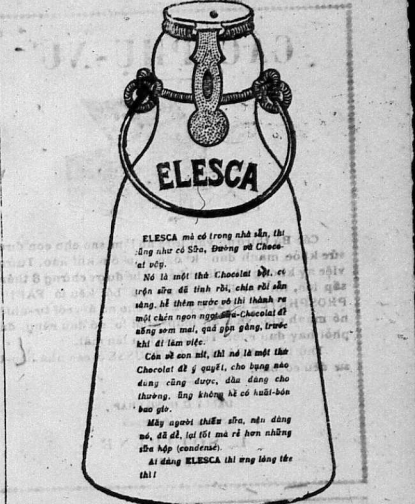 ELESCA
ELESCA mà có trong nhà sẵn, thì
cũng như có Sữa, Đường và Choco-
lat vậy.
Nó là một thứ Chocolat bột, có
trộn sữa đã tinh rồi, chín rồi sẵn
sàng, hễ thêm nước vô thì thành ra
một chén ngon ngọt Sữa-Chocolat để
uống sớm mai, quá gọn gàng, trước
khi đi làm việc.
Còn về con nít, thì nó là một thứ
Chocolat để ý quyết, cho bụng nào
dung cũng được, dầu dùng cho
thường, ũng không hề có huỡi-bón
bao giờ.
Mấy người thiếu sữa, nên dùng
nó, đã dễ, lại tốt mà rẻ hơn những
sữa hộp (condensé).
Ai dùng ELESCA thì ưng lòng tức
thì!